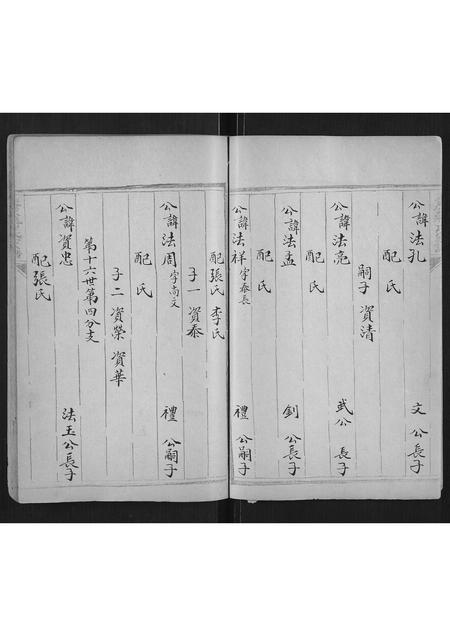 公諱法孔 文公長子
配 氏
嗣子 資清
公諱法亮 武公長子
配 氏
公諱法孟 釗公長子
配 氏
公諱法祥字泰長 禮公嗣子
配張氏 李氏
子一 資泰
公諱法周字尚文 禮公嗣子
配 氏
子二 資榮 資華
第十六世第四分支
公諱資忠 法玉公長子
配張氏